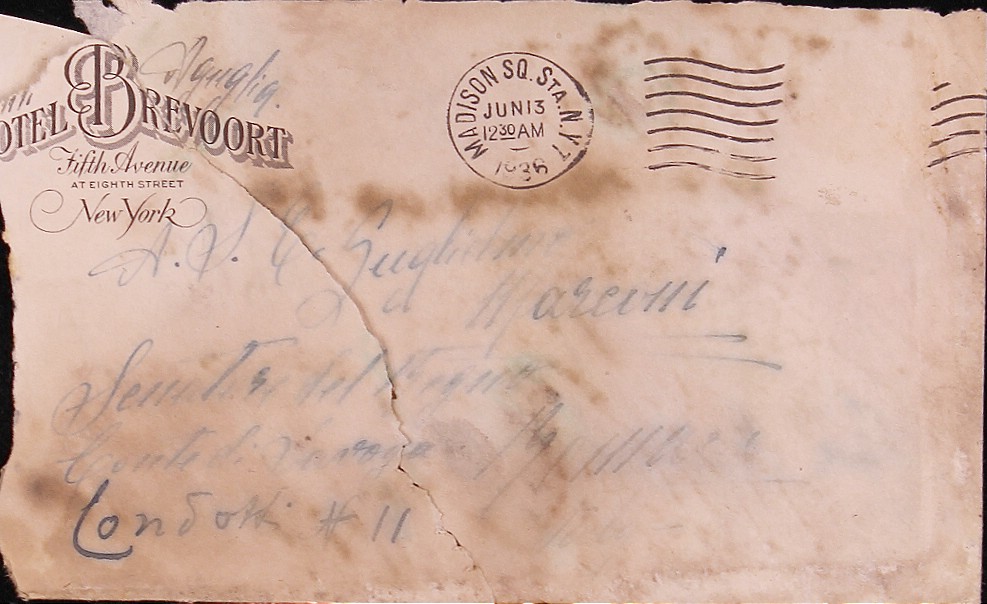 HOTEL BREVOORT
Fifth Avenue
AT EIGHTH STREET
New York
MADISON SQ. STA. N.Y.
JUN 13
12 30 AM
1936
A. S. E. Guglielmo
Marconi
Senator del Regno
Conte di
Condotti # 11